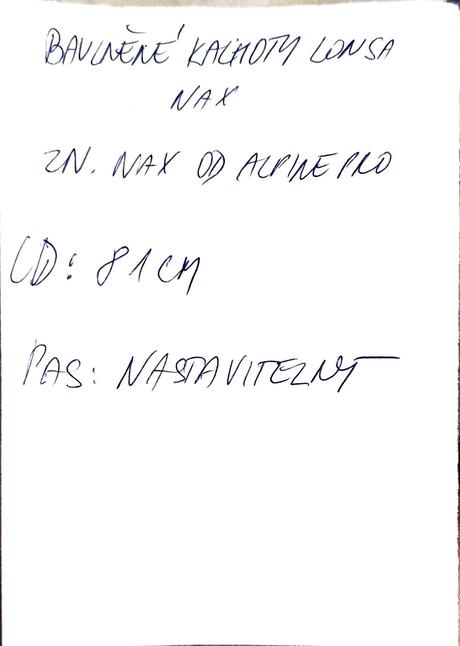 BAVLNĚNÉ KALHOTY LONSA
NAX
ZN. NAX OD ALPINE PRO
CD: 81 CM
PAS: NASTAVITELNÝ